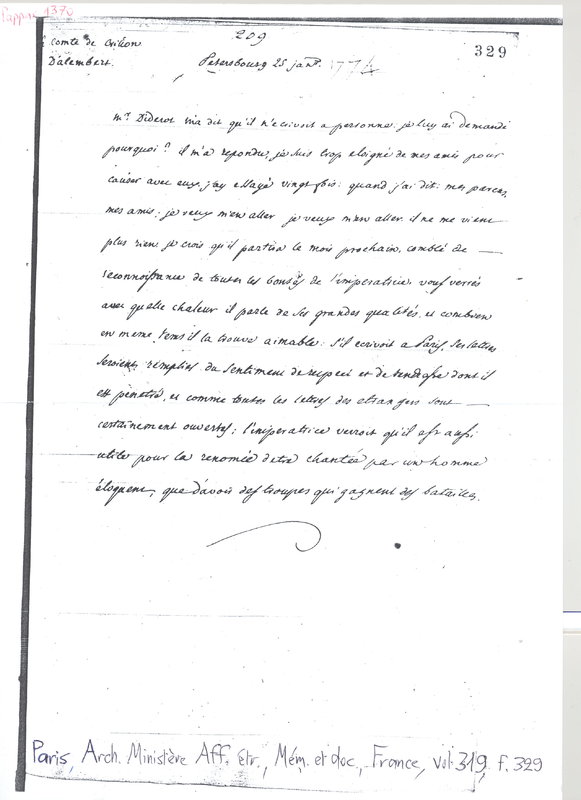 Pappas 1370
209
Comte de Crillon
329
Dalembert.
Petersbourg 25 janv. 1774
mr. Diderot m'a dit qu'il n'ecrivoit a personne. je luy ai demandé
pourquoi? il m'a repondu, je suis trop eloigné de mes amis pour
causer avec eux, j'ay essayé vingt fois: quand j'ai dit: mes parens,
mes amis; je veux m'en aller je veux m'en aller il ne me vient
plus rien je crois qu'il partira le mois prochain, comblé de
reconnoissance de toutes les bontés de l'imperatrice. vous verrés
avec quelle chaleur il parle de ses grandes qualités, et combien
en meme tems il la trouve aimable: s'il ecrivoit a Paris, ses lettres
seroient remplies du sentiment de respect et de tendresse dont il
est penetré, et comme toutes les lettres des etrangers sont
certainement ouvertes; l'imperatrice verroit qu'il est aussi
utile pour la renomée d'etre chantée par un homme
éloquent, que d'avoir des troupes qui gagnent des batailles.
Paris, Arch. Ministère Aff. étr., Mém. et doc., France, vol. 319, f. 329